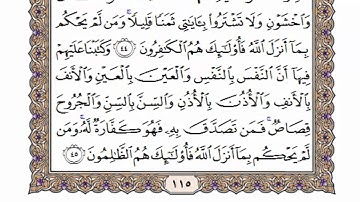 وَٱخْشَوْنِ وَلَا تَشْتَرُوا۟ بِـَٔايَٰتِى ثَمَنًا قَلِيلًا ۚ وَمَن لَّمْ يَحْكُم
بِمَآ أَنزَلَ ٱللَّهُ فَأُو۟لَٰٓئِكَ هُمُ ٱلْكَٰفِرُونَ ٤٤ وَكَتَبْنَا عَلَيْهِمْ
فِيهَآ أَنَّ ٱلنَّفْسَ بِٱلنَّفْسِ وَٱلْعَيْنَ بِٱلْعَيْنِ وَٱلْأَنفَ
بِٱلْأَنفِ وَٱلْأُذُنَ بِٱلْأُذُنِ وَٱلسِّنَّ بِٱلسِّنِّ وَٱلْجُرُوحَ
قِصَاصٌ ۚ فَمَن تَصَدَّقَ بِهِۦ فَهُوَ كَفَّارَةٌ لَّهُۥ ۚ وَمَن
لَّمْ يَحْكُم بِمَآ أَنزَلَ ٱللَّهُ فَأُو۟لَٰٓئِكَ هُمُ ٱلظَّٰلِمُونَ ٤٥
١١٥